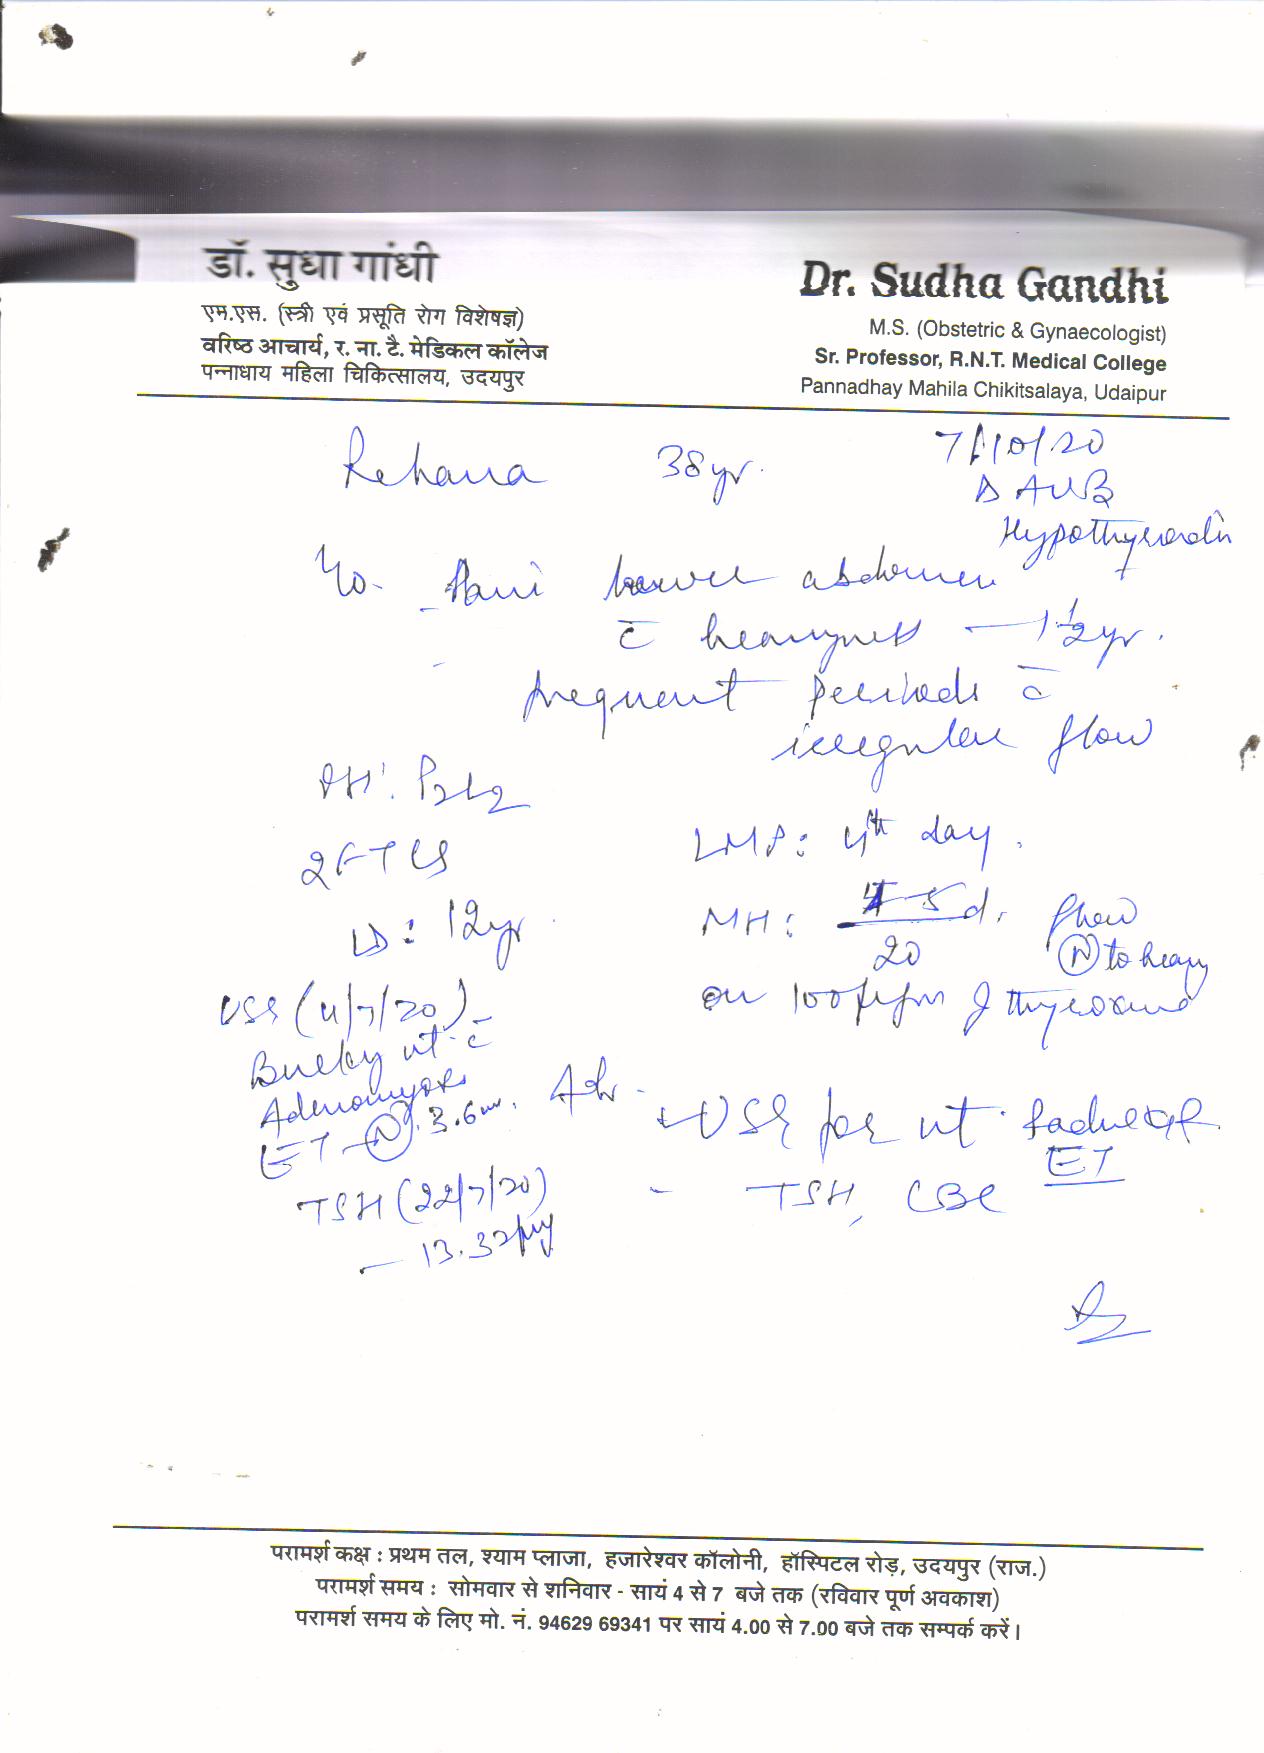 डॉ. सुधा गांधी
एम.एस. (स्त्री एवं प्रसूति रोग विशेषज्ञ)
वरिष्ठ आचार्य, र. ना. टै. मेडिकल कॉलेज
पन्नाधाय महिला चिकित्सालय, उदयपुर
Dr. Sudha Gandhi
M.S. (Obstetric & Gynaecologist)
Sr. Professor, R.N.T. Medical College
Pannadhay Mahila Chikitsalaya, Udaipur
Rehana 38 yr. 7/10/20
AUB
- Pain lower abdomen
c̄ heavyness - 1 1/2 yr.
frequent periods c̄
irregular flow
OH: P2L2
2 FTCS
LD: 12 yr.
LMP: 4th day.
MH: 4-5 d. flow
20 (N) to heavy
on 100 thyroxine
USG (11/7/20)
Bulky ut c̄
Adenomyosis
ET - (N) 3.6 mm.
TSH (22/7/20)
- 13.32
Adv -
- USG for ut &
ET
- TSH, CBC
परामर्श कक्ष : प्रथम तल, श्याम प्लाजा, हजारेश्वर कॉलोनी, हॉस्पिटल रोड़, उदयपुर (राज.)
परामर्श समय : सोमवार से शनिवार - सायं 4 से 7 बजे तक (रविवार पूर्ण अवकाश)
परामर्श समय के लिए मो. नं. 94629 69341 पर सायं 4.00 से 7.00 बजे तक सम्पर्क करें।